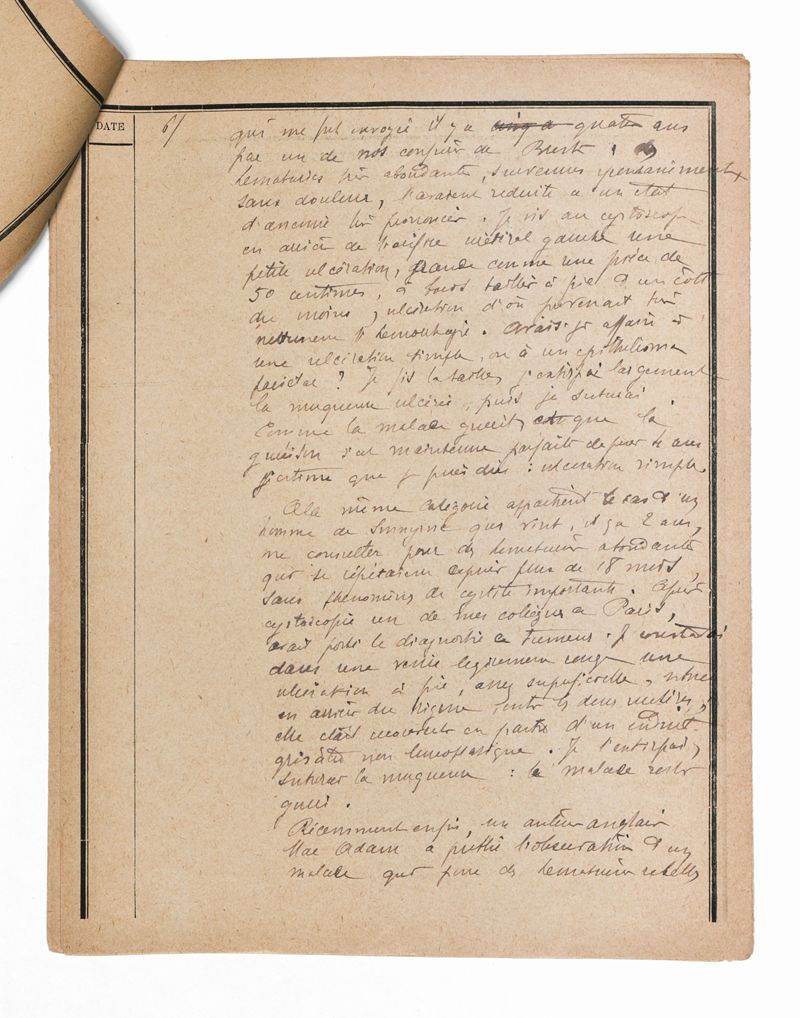 DATE
6/
qui me fut envoyée il y a cinq a quatre ans
par un de nos confrères de Brest : des
hematuries très abondantes, survenues spontanément
sans douleur, l'avaient reduite a un état
d'anemie très prononcée. Je vis au cystoscope
en arrière de l'orifice uretéral gauche une
petite ulcération, grande comme une pièce de
50 centimes, à bords taillés à pic d'un côté
du moins, ulcération d'où provenait très
nettement l'hemorrhagie. Avais-je affaire à
une ulcération simple, ou à un epithelioma
? Je fis la taille, j'extirpai largement
la muqueuse ulcérée, puis je suturai.
Comme la malade guerit, et que la
guérison s'est maintenue parfaite depuis 4 ans
j'estime que je puis dire : ulceration simple.
A la même categorie appartient le cas d'un
homme de Smyrne qui vint, il y a 2 ans,
me consulter pour des hematuries abondantes
qui se répétaient depuis plus de 18 mois,
sans phenomènes de cystite importants. Après
cystoscopie un de mes collègues de Paris,
avait porté le diagnostic de tumeur. Je constatai
dans une vessie legèrement rouge une
ulcération à pic, assez superficielle, située
en arrière du trigone, entre les deux uretères ;
elle était recouverte en partie d'un enduit
grisâtre non neoplasique. Je l'extirpai,
suturai la muqueuse : le malade resta
gueri.
Récemment enfin, un auteur anglais
Mac Adam a publié l'observation d'un
malade qui pour des hematuries rebelles